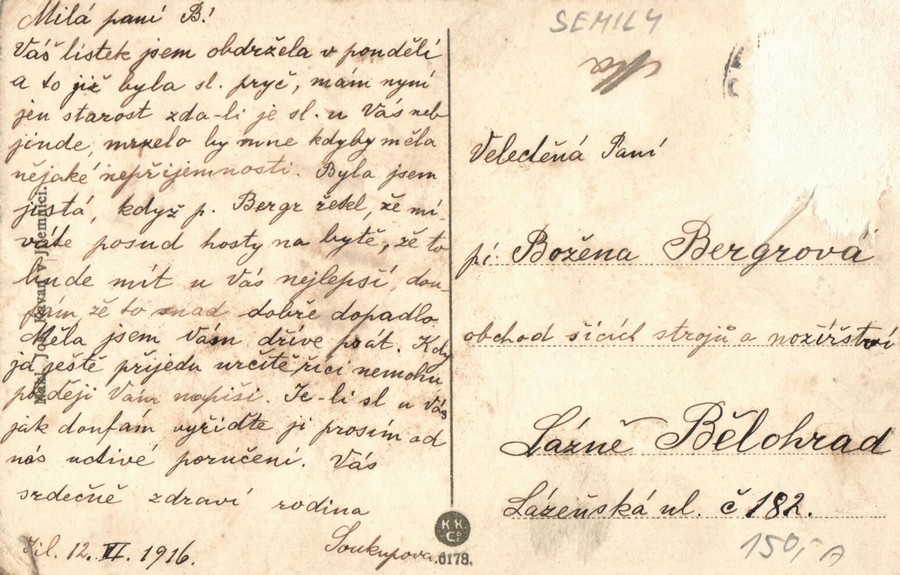 Milá paní B!
Váš lístek jsem obdržela v pondělí
a to již byla sl. pryč, mám nyní
jen starost zda-li je sl. u Vás neb
jinde, mrzelo by mne kdyby měla
nějaké nepříjemnosti. Byla jsem
jistá, když p. Bergr řekl, že mí-
váte posud hosty na bytě, že to
bude mít u Vás nejlepší, dou-
fám, že to snad dobře dopadlo.
Měla jsem Vám dříve psát. Kdy
já ještě přijedu určitě, říci nemohu
později Vám napíši. Je-li sl u Vás
jak doufám vyřiďte jí prosím od
nás uctivé poručení. Vás
srdečně zdraví rodina
Soukupova
Jil. 12. VI. 1916.
Nakl. Jos. Kavan v Jilemnici.
K K
C°
6178.
SEMILY
Velectěná Paní
pí: Božena Bergrová
obchod šicích strojů a nožířství
Lázně Bělohrad
Lázeňská ul. č 182.
150,- A